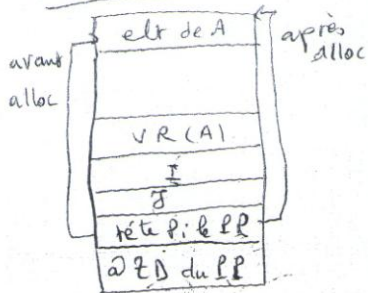 elt de A
avant
alloc
après
alloc
VR(A)
I
J
tête Pile PP
@ZD du PP